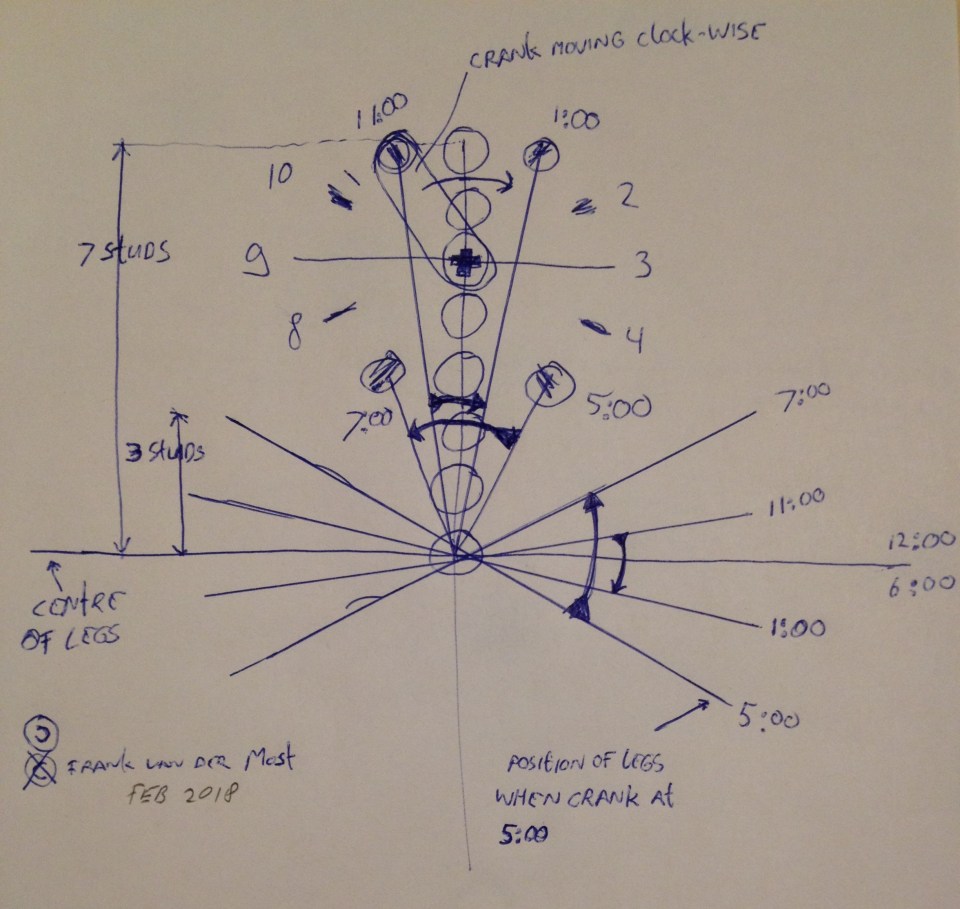 CRANK MOVING Clock-WISE
11:00
1:00
10
2
7 StUDS
9
3
8
4
7:00
5:00
7:00
3 StUDS
11:00
12:00
6:00
CENtRE
OF LEGS
1:00
5:00
FRANK VAN DER MOST
FEB 2018
POSITION OF LEGS
WHEN CRANK At
5:00